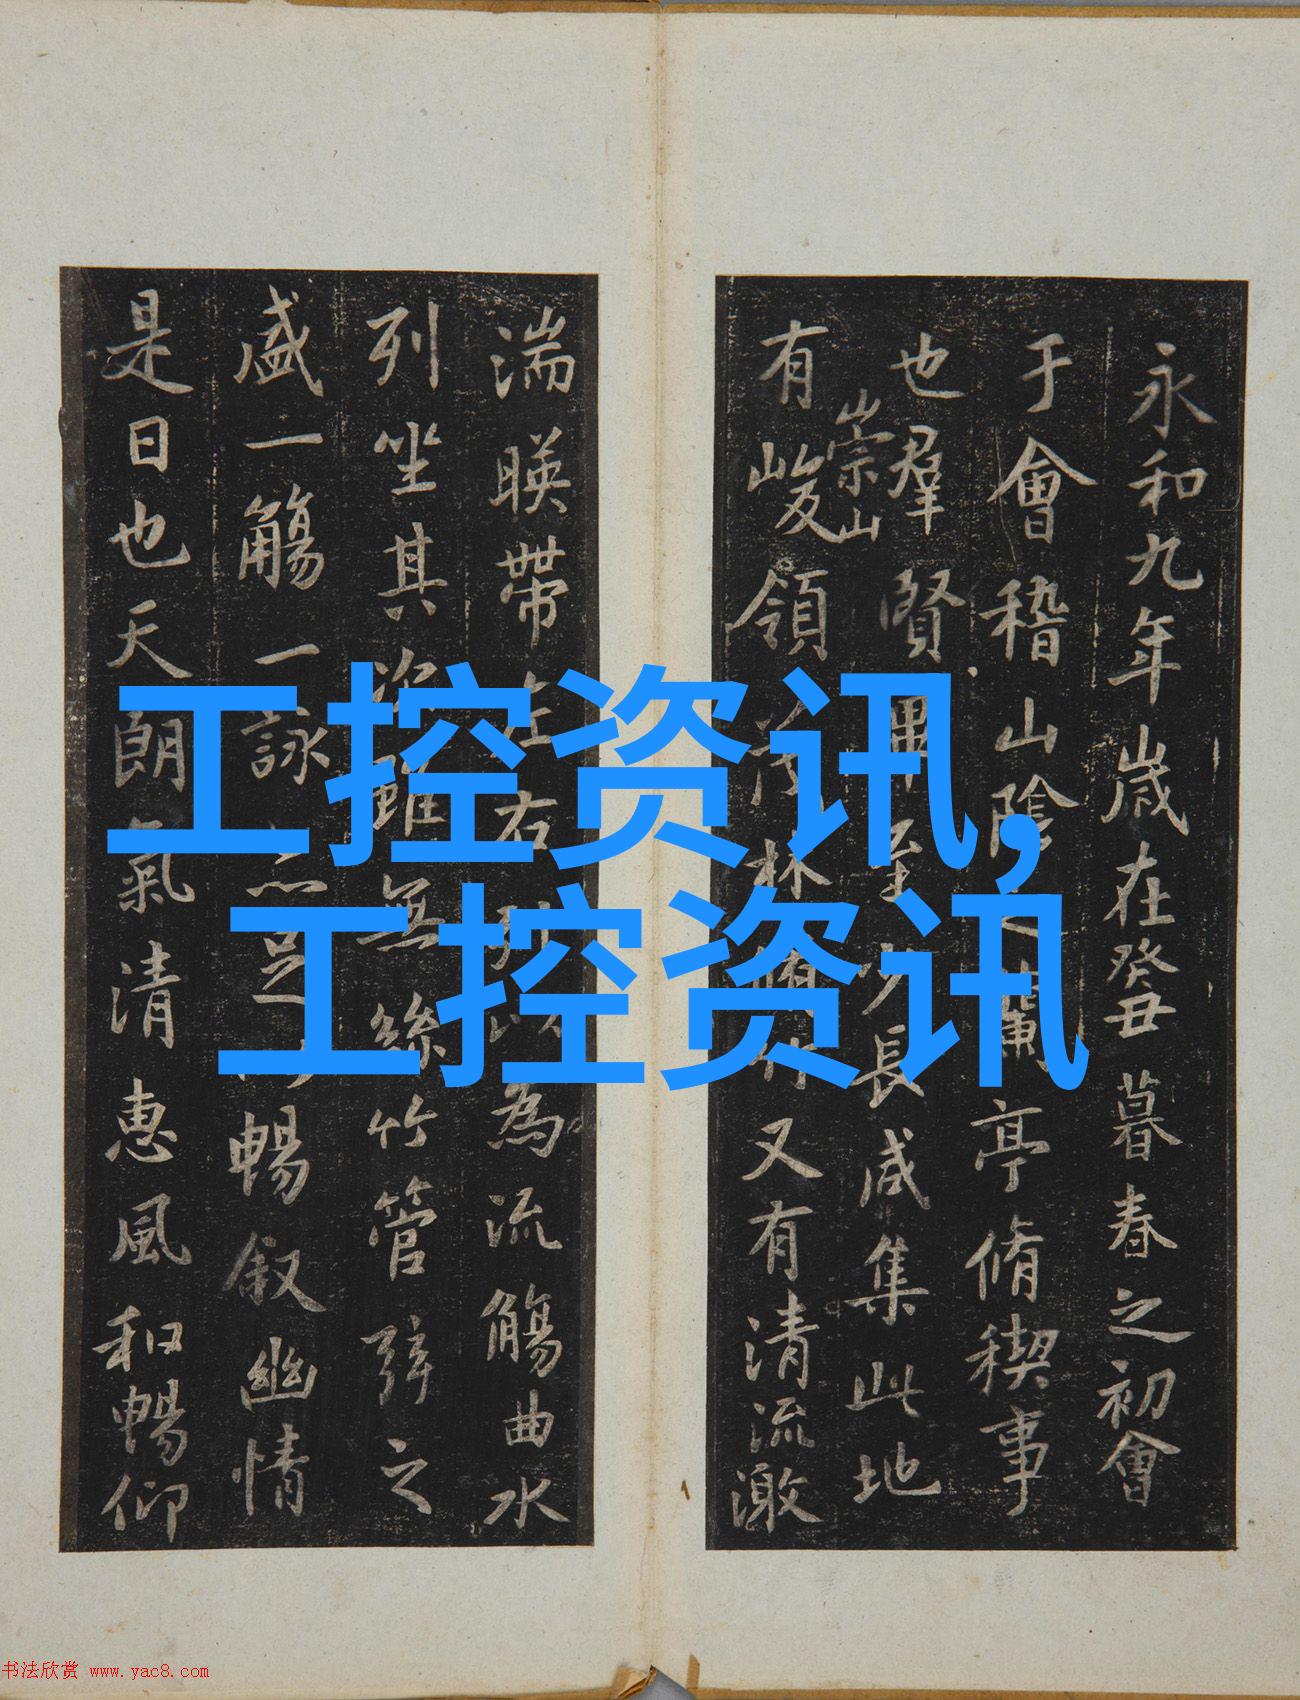 永和九年歲在癸丑暮春之初會
于會稽山陰之蘭亭脩稧事
也羣賢畢至少長咸集此地
有崇山峻領茂林脩竹又有清流激
湍暎帶左右引以為流觴曲水
列坐其次雖無絲竹管弦之
盛一觴一詠亦足以暢叙幽情
是日也天朗氣清惠風和暢仰
工控资讯,
工控资讯
书法欣赏 www.yac8.com